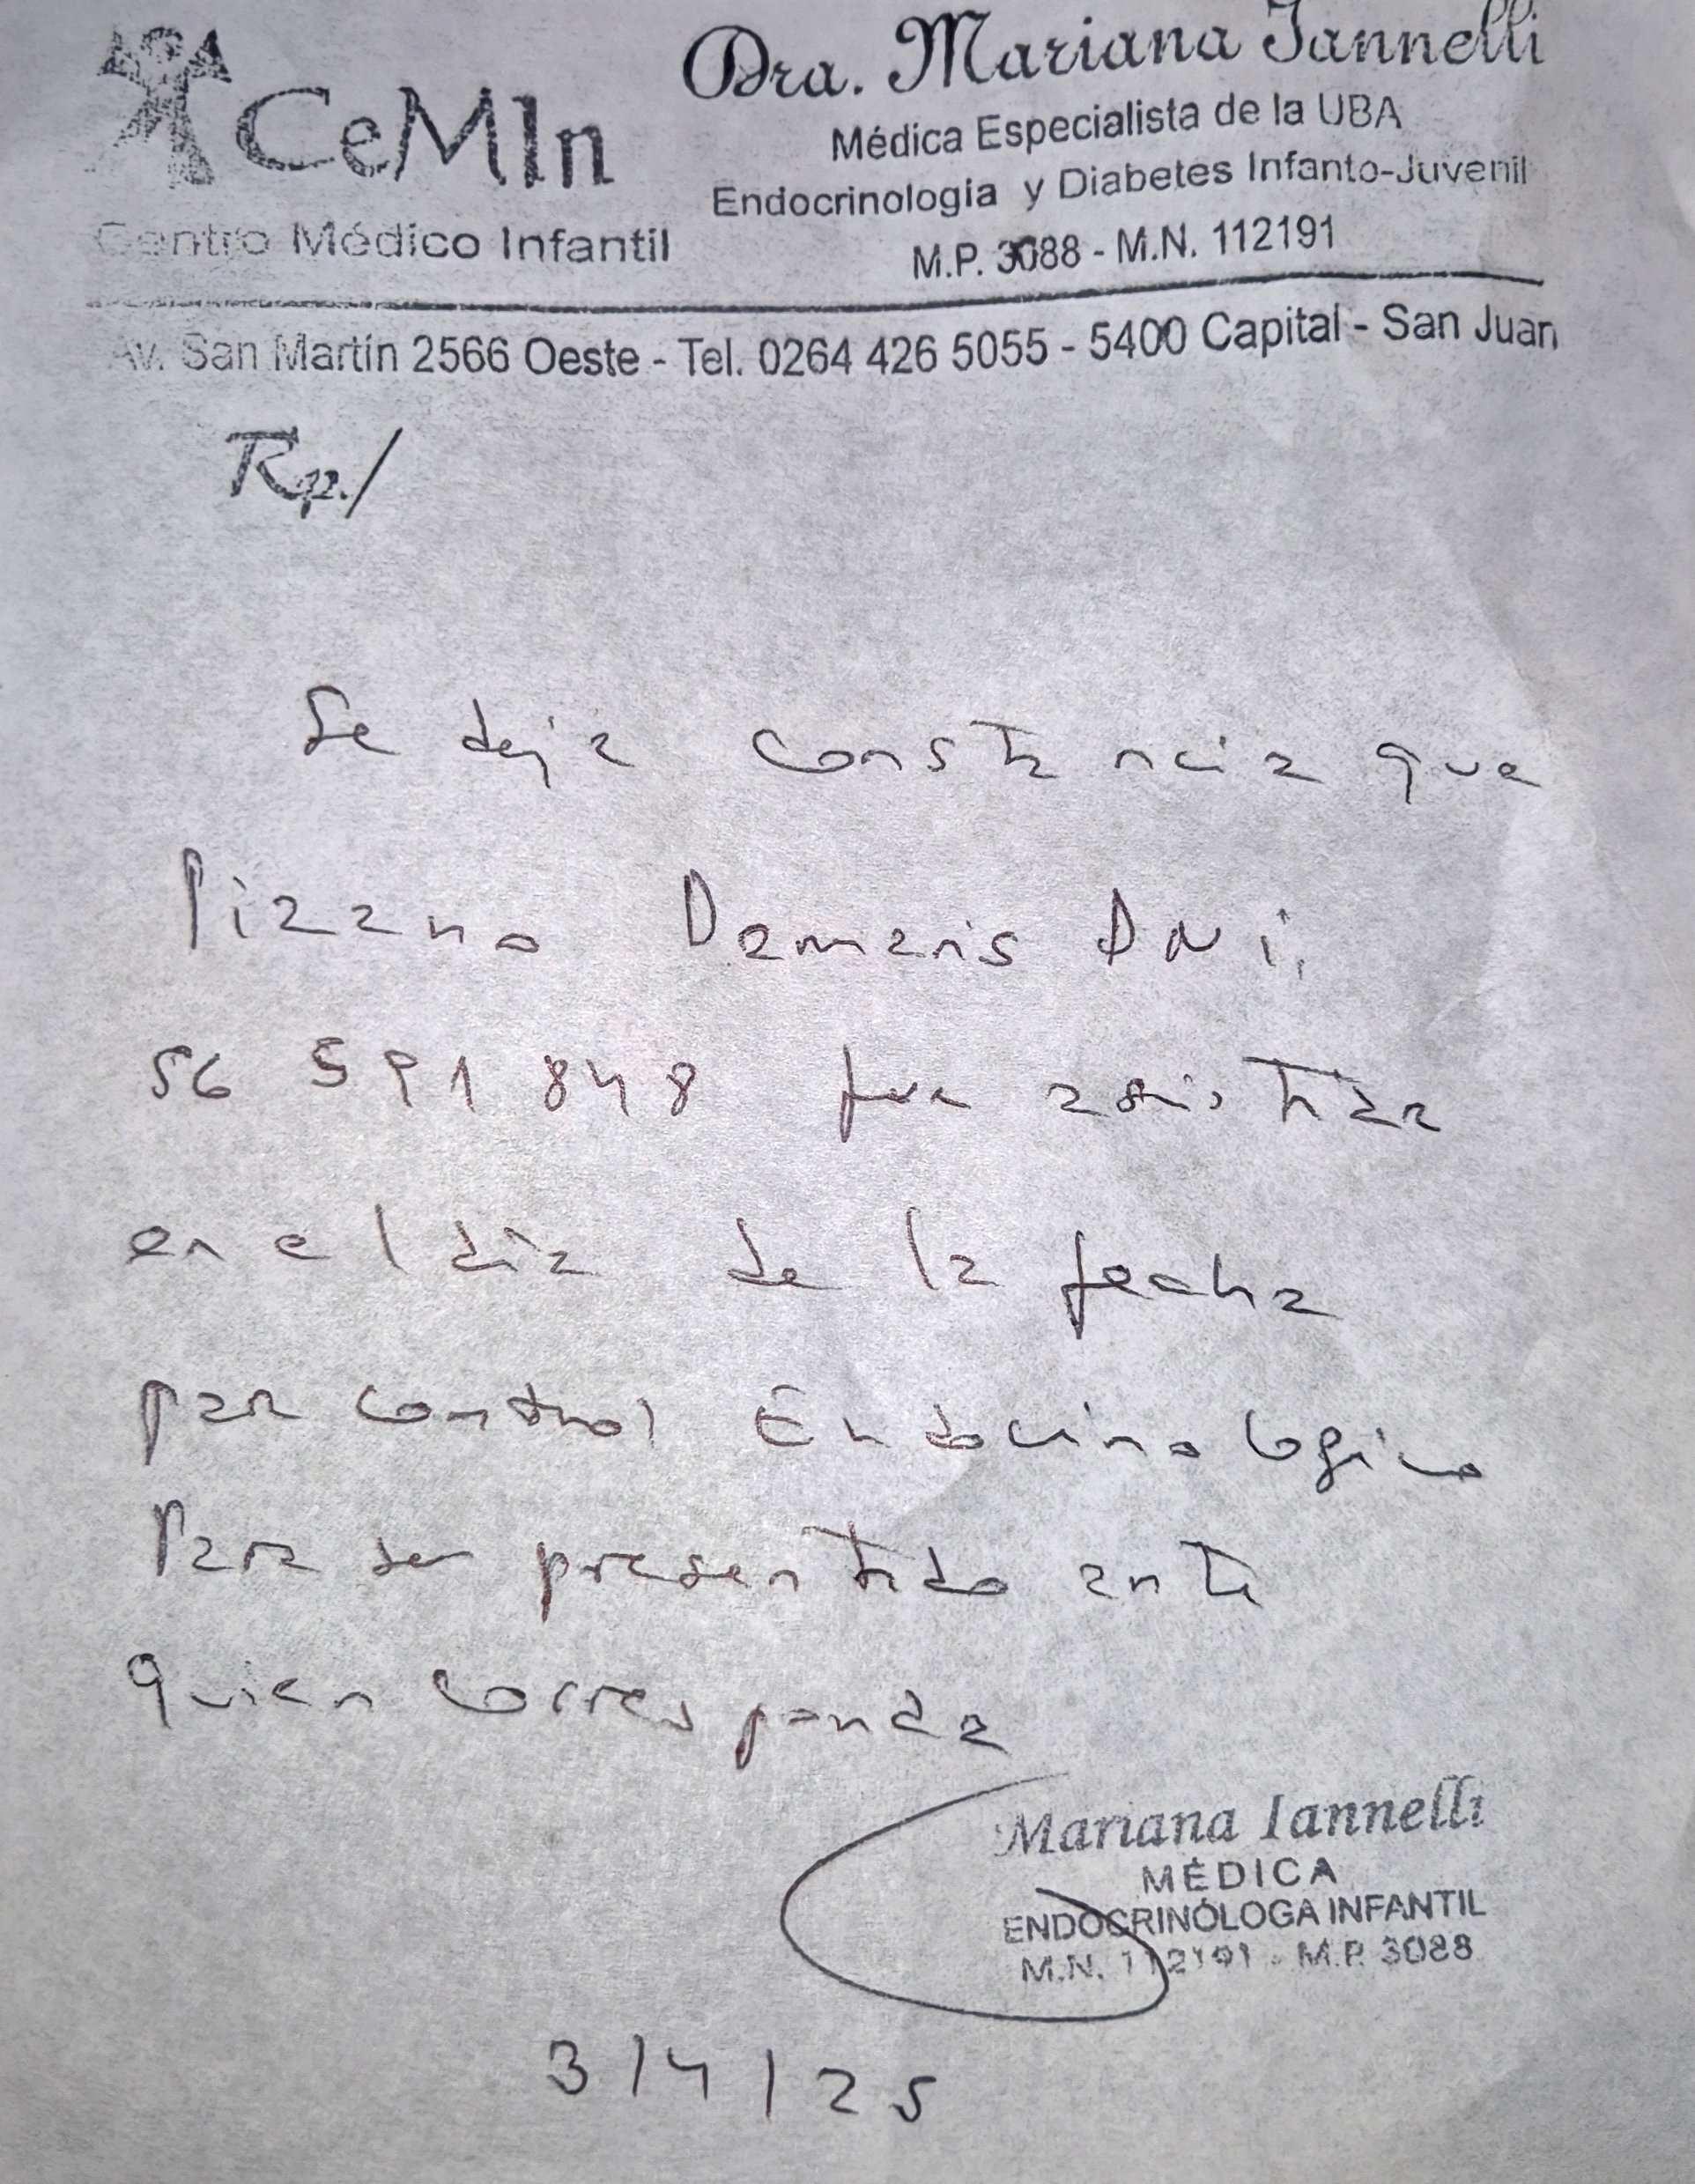 CeMIn
Centro Médico Infantil
Dra. Mariana Iannelli
Médica Especialista de la UBA
Endocrinología y Diabetes Infanto-Juvenil
M.P. 3088 - M.N. 112191
Av. San Martín 2566 Oeste - Tel. 0264 426 5055 - 5400 Capital - San Juan
Rp./
Se deja constancia que
Damaris DNi.
56 591 848 fue asistida
en el día de la fecha
por control Endocrinologico
Para ser presentado ante
quien corresponda
Mariana Iannelli
MÉDICA
ENDOCRINÓLOGA INFANTIL
M.N. 112191 - M.P. 3088
3/4/25